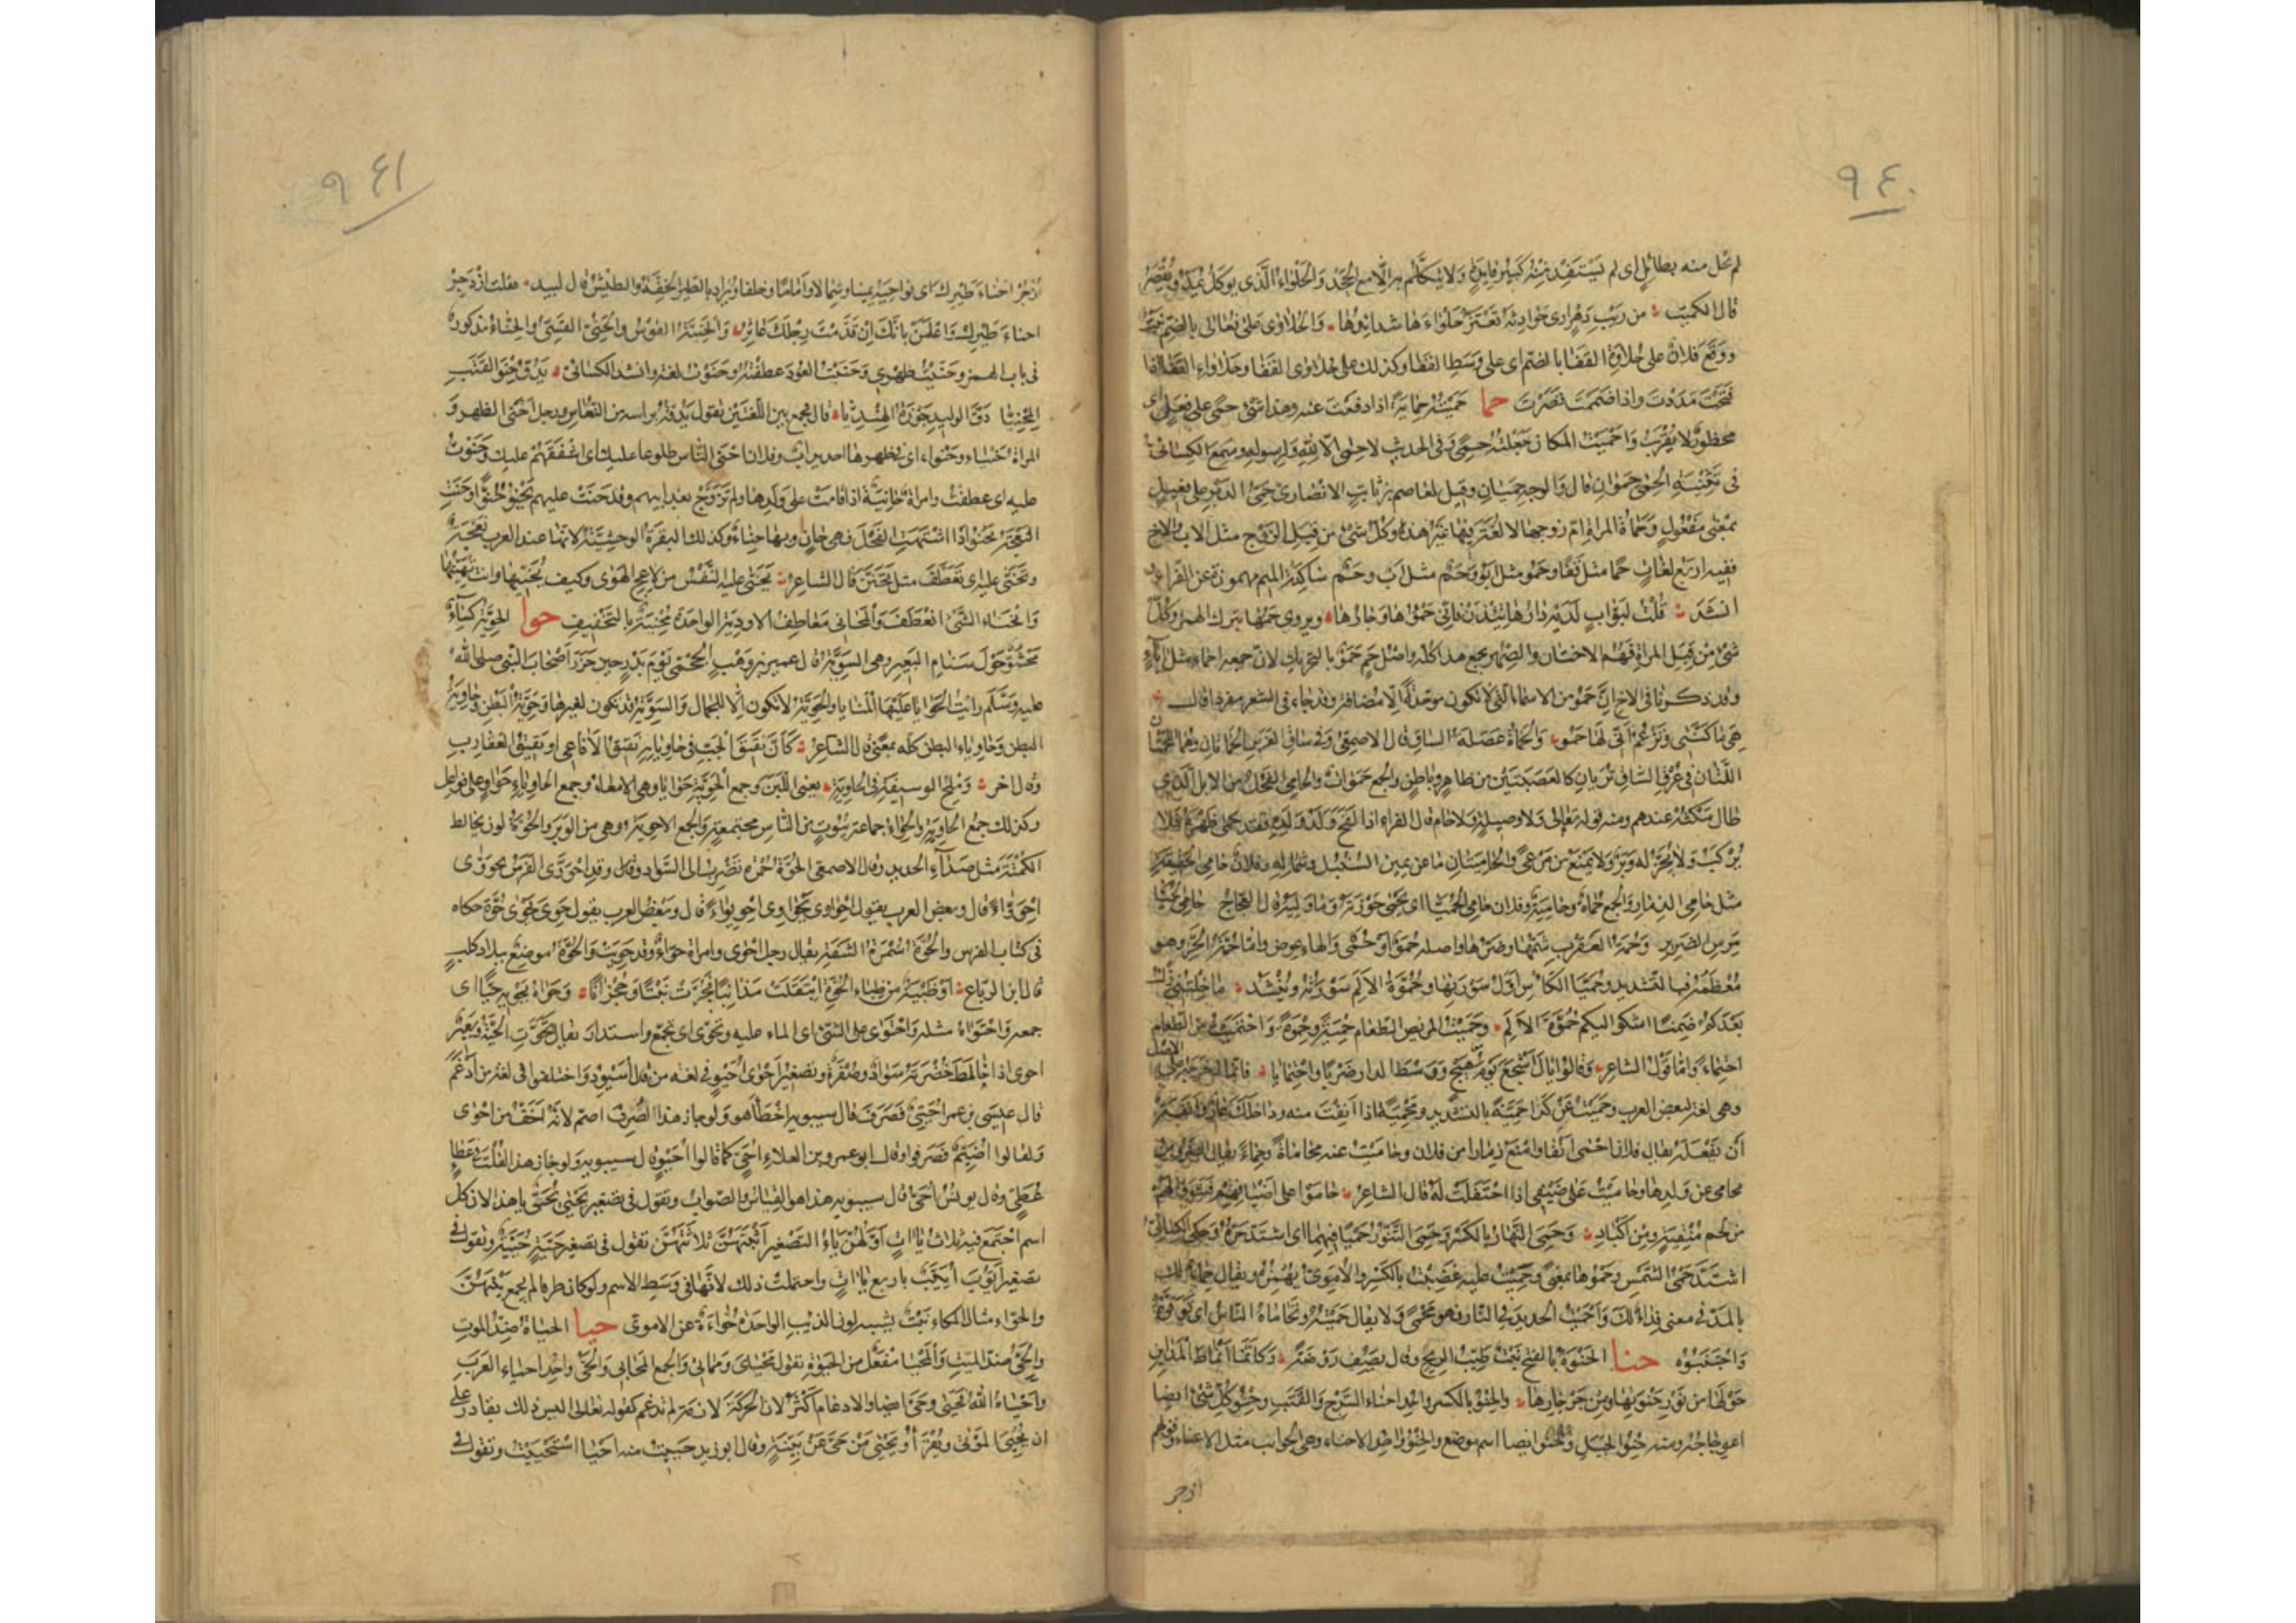 ٩٤٠
لم يحل منه بطائل اى لم يستفد منه كبير فايدة ولا يتكلم به الا مع الجحد والحلواء الذى يوكل يمد ويقصر
قال الكميت من ريب دهر ارى حوادثه تعتز حلواءها شدائدها والحلاوى على فعالى بالضم نبت
ووقع فلان على حلاوة القفا بالضم اى على وسط القفا وكذلك على حلاوى القفا وحلاواء القفا اذا
فتحت مددت واذا ضممت قصرت حما حميته حماية اذا دفعت عنه وهذا شئ حمى على فعل اى
محظور لا يقرب واحميت المكان جعلته حمى وفى الحديث لا حمى الا لله ولرسوله وسمع الكسائى
فى تثنية الحمى حموان قال والوجه حميان وقيل لعاصم بن ثابت الانصارى حمى الدبر على فعيل
بمعنى مفعول وحماة المراة ام زوجها لا لغة فيها غير هذه وكل شئ من قبل الزوج مثل الاب والاخ
ففيه اربع لغات حما مثل قفا وحمو مثل ابو وحم مثل اب وحمء ساكنة الميم مهموزة عن الفراء و
انشد قلت لبواب لديه دارها تئذن فانى حمؤها وجارها ويروى حمها بترك الهمز وكل
شئ من قبل المراة فهم الاختان والصهر يجمع هذا كله واصل حم حمو بالتحريك لان جمعه احماء مثل اباء
وقد ذكرنا فى الاخ ان حمو من الاسماء التى لا تكون موحدة الا مضافة وقد جاء فى الشعر مفردا قال
هى ما كنتى وتزعم انى لها حمو والحماة عضلة الساق قال الاصمعى وفى ساق الفرس الحماتان وهما اللحمتان
اللتان فى عرض الساق تريان كالعصبتين من ظاهر وباطن والجمع حموات والحامى الفحل من الابل الذى
طال مكثه عندهم ومنه قوله تعالى ولا وصيلة ولا حام قال الفراء اذا لقح ولد ولده فقد حمى ظهره فلا
يركب ولا يجز له وبر ولا يمنع من مرعى والحاميتان ما عن يمين السنبل وشماله وفلان حامى الحقيقة
مثل حامى الذمار والجمع حماة وحامية وفلان حامى الحميا اى يحمى حوزته وما وليه قال العجاج حامى الحميا
مرس الضرير وحمة العقرب سمها وضرها واصله حمو او حمى والهاء عوض واما حمة الحر وهو
معظمه فبالتشديد وحميا الكاس اول سورتها وحموة الالم سورته وينشد ما خلتنى زلت
بعدكم ضمنا اشكو اليكم حموة الالم وحميت المريض الطعام حمية وحموة واحتميت من الطعام
احتماء واما قول الشاعر وقالوا يال اشجع يوم هيج ووسط الدار ضربا واحتمايا فانما اخرجه على الاصل
وهى لغة لبعض العرب وحميت عن كذا حمية بالتشديد ومحمية اذا انفت منه وداخلك عار وانفة
ان تفعله يقال فلان احمى انفا وامنع ذمارا من فلان وحاميت عنه محاماة وحماء يقال الضروس
تحامى عن ولدها وحاميت على ضيفى اذا احتفلت له قال الشاعر حاموا على اضيافهم فشووا لهم
من لحم منقية ومن اكباد وحمى النهار بالكسر وحمى التنور حميا فيهما اى اشتد حره وحكى الكسائى
اشتد حمى الشمس وحموها بمعنى وحميت عليه غضبت بالكسر والاموى يهمزه ويقال حماء لك
بالمد فى معنى فداء لك واحميت الحديد فى النار فهو محمى ولا يقال حميته وتحاماه الناس اى توقوه
واجتنبوه حنا الحنوة بالفتح نبت طيب الريح وقال يصف روضة وكانما انماط المداين
حولها من نور حنوتها ومن جرجارها والحنو بالكسر واحد احناء السرج والقتب وحنو كل شئ ايضا
اعوجاجه ومنه حنو الجبل والحنو ايضا اسم موضع والحنو واحد الاحناء وهى الجوانب مثل الاعناء وقولهم
ازجر
٩٤١
ازجر احناء طيرك اى نواحيه يمينا وشمالا واماما وخلفا ويراد بالطير الخفة والطيش قال لبيد فقلت ازدجر
احناء طيرك واعلمن بانك ان قدمت رجلك عاثر والحنية القوس والحنى القسى والحناء مذكور
فى باب الهمز وحنيت ظهرى وحنيت العود عطفته وحنوت لغة وانشد الكسائى يدق حنو القتب
المحنيا دق الوليد جوزه الهنديا قال يجمع بين اللغتين يقول يدقه براسه من النعاس ورجل احنى الظهر و
المراة حنياء وحنواء اى فى ظهرها احديداب وفلان احنى الناس ضلوعا عليك اى اشفقهم عليك وحنوت
عليه اى عطفت وامراة حانية اذا قامت على ولدها ولم تزوج بعد ابيهم وقد حنت عليهم تحنو حنوا وحنت
النعجة تحنو اذا اشتهت الفحل فهى حان وبها حناء وكذلك البقرة الوحشية لانها عند العرب نعجة
وتحنى عليه اى تعطف مثل تحنن قال الشاعر تحنى عليه النفس من لاعج الهوى وكيف تحنيها وانت تهينها
وانحناء الشئ انعطف والمحانى معاطف الاودية الواحدة محنية بالتخفيف حوا الحوية كساء
محشو حول سنام البعير وهى السوية قال عمير بن وهب الجمحى يوم بدر حين حزر اصحاب النبى صلى الله
عليه وسلم رايت الحوايا عليها المنايا والحوية لا تكون الا للجمال والسوية قد تكون لغيرها وحوية البطن وحاوية
البطن وحاوياء البطن كله بمعنى قال الشاعر كان نقيق الحب فى حاويائه نقيق الافاعى او نقيق العقارب
وقال اخر وملح الوسيقة فى الحاوية يعنى اللبن وجمع الحوية حوايا وهى الامعاء وجمع الحاوياء حواوى على فواعل
وكذلك جمع الحاوية والحواء جماعة بيوت من الناس مجتمعة والجمع الاحوية وهى من الوبر والحوة لون يخالط
الكمتة مثل صداء الحديد وقال الاصمعى الحوة حمرة تضرب الى السواد وقال وقد احووى الفرس يحووى
احوواء قال وبعض العرب يقول احواوى يحواوى احويواء قال وبعض العرب يقول حوى يحوى حوة حكاه
فى كتاب الفرس والحوة سمرة الشفة يقال رجل احوى وامراة حواء وقد حويت والحوة موضع ببلاد كلب
قال ابن الرقاع او ظبية من ظباء الحوة ابتقلت مذانبا فجرت نبتا وحجرانا وحواه يحويه حيا اى
جمعه واحتواه مثله واحتوى على الشئ اى الماء عليه وتحوى اى تجمع واستدار يقال تحوت الحية وبعير
احوى اذا خالط خضرته سواد وصفرة وتصغير احوى احيو فى لغة من قال اسيود واختلفوا فى لغة من ادغم
قال عيسى بن عمر احيى فصرف قال سيبويه اخطا هو ولو جاز هذا لصرف اصم لانه اخف من احوى
ولقالوا اصيم فصرفوا وقال ابو عمرو بن العلاء احى كما قالوا احيو قال سيبويه ولو جاز هذا لقلت فى عطاء
عطى وقال يونس احى قال سيبويه هذا هو القياس والصواب وتقول فى تصغير يحيى يحيى يا هذا لان كل
اسم اجتمع فيه ثلاث ياات اولهن ياء التصغير اثبتهن ثلاثتهن تقول فى تصغير حية حيية وتقول فى
تصغير ايوب اييب باربع ياات واحتملت ذلك لانها فى وسط الاسم ولو كان طرفا لم يجمع بينهن
والحواء مثال المكاء نبت يشبه لون الذيب الواحدة حواءة عن الاموى حيا الحياة ضد الموت
والحى ضد الميت والمحيا مفعل من الحيوة تقول محياى ومماتى والجمع المحايى والحى واحد احياء العرب
واحياه الله فحيى وحى ايضا والادغام اكثر لان الحركة لازمة لم تدغم كقوله تعالى اليس ذلك بقادر على
ان يحيى الموتى ويقرا ويحيى من حى عن بينة وقال ابو زيد حييت منه احيا استحييت وتقول فى